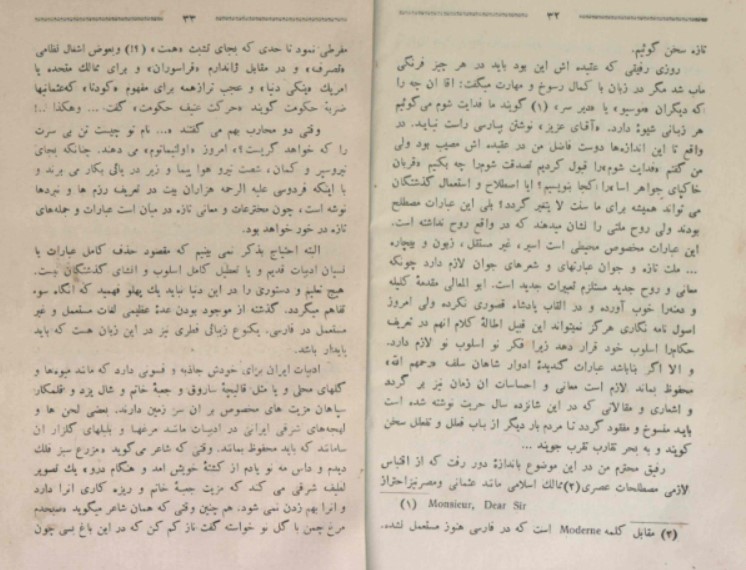 ۳۲
تازه سخن گوئیم.
روزی رفیقی که عقیده اش این بود باید در هر چیز فرنگی
ماب شد مگر در زبان با کمال رسوخ و مهارت میگفت: اقا ان چه را
که دیگران «موسیو» یا «دیر سر» (۱) گویند ما فدایت شوم می‌گوئیم
هر زبانی شیوهٔ دارد. «آقای عزیز» نوشتن بپارسی راست نیاید. در
واقع تا این اندازه‌ها دوست فاضل من در عقیده اش مصیب بود ولی
من گفتم «فدایت شوم» را قبول کردیم تصدقت شوم‌را چه بکنیم «قربان
خاکپای جواهر اسا» را کجا بنویسیم؟ ایا اصطلاح و استعمال گذشتگان
می تواند همیشه برای ما سنت لا یتغیر گردد؟ بلی این عبارات مصطلح
بودند ولی روح ملتی را نشان میدهند که در واقع روح نداشته است.
این عبارات مخصوص محیطی است اسیر، غیر مستقل، زبون و بیچاره
... ملت تازه و جوان عبارتهای و شعرهای جوان لازم دارد چونکه
معانی و روح جدید مستلزم تعبیرات جدید است. ابو المعالی مقدمهٔ کلیله
و دمنه‌را خوب آورده و در القاب پادشاه قصوری نکرده ولی امروز
اصول نامه نگاری هرگز نمیتواند این قبیل اطالهٔ کلام انهم در تعریف
حکام‌را اسلوب خود قرار دهد زیرا فکر نو اسلوب نو لازم دارد.
و الا اگر بناباشد عبارات گندیدهٔ ادوار شاهان سلف «رحمهم الله»
محفوظ بماند لازم است معانی و احساسات ان زمان نیز بر گردد
و اشعاری و مقالاتی که در این شانزده سال حریت نوشته شده است
باید مفسوخ و مفقود گردد تا مردم بار دیگر از باب فعلل و تفعلل سخن
گویند و به بحر تقارب تقرب جویند ...
رفیق محترم من در این موضوع باندازهٔ دور رفت که از اقتباس
لازمی مصطلحات عصری (۲) ممالك اسلامی مانند عثمانی ومصر نیز احتراز
(۱) Monsieur, Dear Sir
(۲) مقابل کلمه Moderne است که در فارسی هنوز مستعمل نشده.
۳۳
مفرطی نمود تا حدی که بجای تشبث «همت» (!؟) وبعوض اشغال نظامی
«تصرف» و در مقابل ژاندارم «فراسوران» و برای ممالك متحده یا
امریك «ینکی دنیا» و عجب ترازهمه برای مفهوم «کودتا» که‌عثمانیها
ضربهٔ حکومت گویند «حرکت عنیف حکومت» گفت ... وهکذا ..!
وقتی دو محارب بهم می گفتند «... نام تو چیست تن بی سرت
را که خواهد گریست؟» امروز «اولتیماتوم» می دهند. چنانکه بجای
تیروسپر و کمان، شصت تیرو هوا پیما و زیر در یائی بکار می برند و
با اینکه فردوسی علیه الرحمه هزاران بیت در تعریف رزم ها و نبردها
نوشته است، چون مخترعات و معانی تازه در میان است عبارات و جمله‌های
تازه در خور خواهد بود.
البته احتیاج بذکر نمی بینیم که مقصود حذف کامل عبارات یا
نسیان ادبیات قدیم و یا تعطیل کامل اسلوب و انشای گذشتگان نیست.
هیچ تعلیم و دستوری را در این دنیا نباید یك پهلو فهمید که انگاه سوء
تفاهم میگردد. گذشته از موجود بودن عدهٔ عظیمی لغات مستعمل و غیر
مستعمل در فارسی، یکنوع زیبائی فطری نیز در این زبان هست که باید
پایدار باشد.
ادبیات ایران برای خودش جاذبه و فسونی دارد که مانند میوه‌ها و
گلهای محلی و یا مثل قالیچهٔ ساروق و جعبهٔ خاتم و شال یزد و قلمکار
سپاهان مزیت های مخصوص بر ان سر زمین دارند. بعضی لحن ها و
لهجه‌های شرقی ایرانی در ادبیات مانند مرغها و بلبلهای گلزار ان
سامانند که باید محفوظ بمانند. وقتی که شاعر می گوید «مزرع سبز فلك
دیدم و داس مه نو یادم از کشتهٔ خویش امد و هنگام درو» یك تصویر
لطیف شرقی می کند که مزیت جعبهٔ خاتم و ریزه کاری انرا دارد
و انرا بهم زدن نمی شود. هم چنین وقتی که همان شاعر میگوید «صبحدم
مرغ چمن با گل نو خواسته گفت ناز کم کن که در این باغ بسی چون